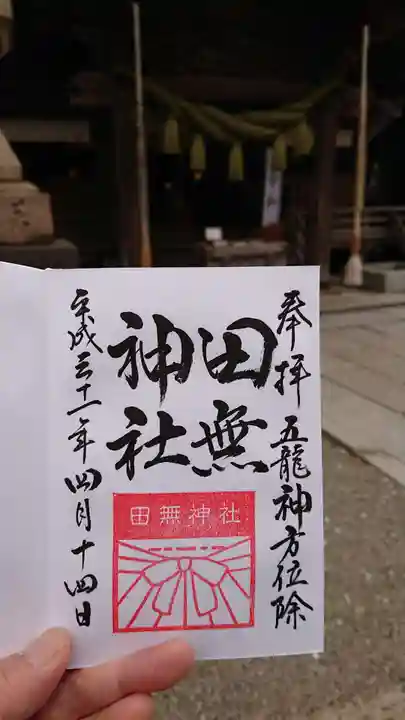 奉拝 五龍神方位除
田無
神社
田無神社
平成三十一年四月十四日